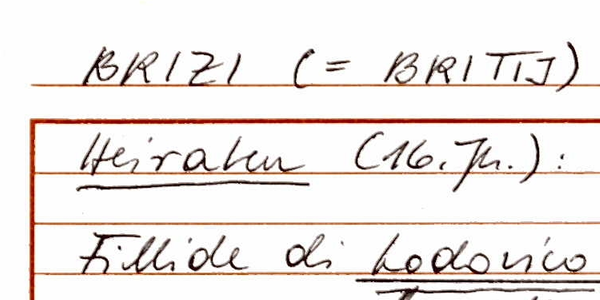 BRIZI (= BRITIJ)
Heiraten (16. Jh.):
Fillide di Lodovico